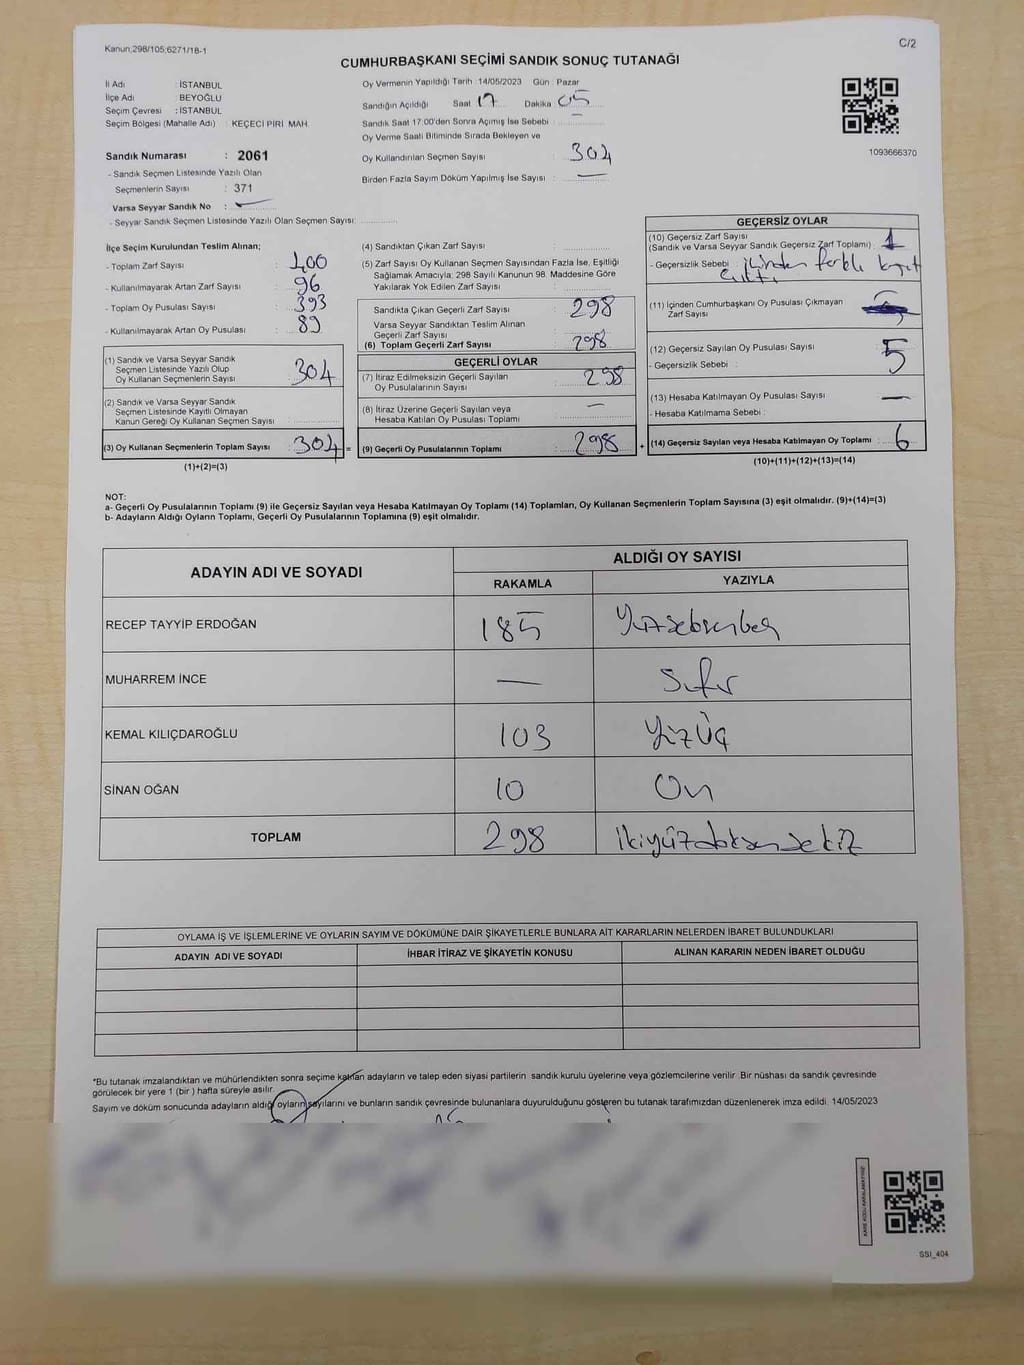 Kanun,298/105;6271/18-1
C/2
CUMHURBAŞKANI SEÇİMİ SANDIK SONUÇ TUTANAĞI
İl Adı : İSTANBUL
İlçe Adı : BEYOĞLU
Seçim Çevresi : İSTANBUL
Seçim Bölgesi (Mahalle Adı) : KEÇECİ PİRİ MAH.
Sandık Numarası : 2061
- Sandık Seçmen Listesinde Yazılı Olan
Seçmenlerin Sayısı : 371
Varsa Seyyar Sandık No :
- Seyyar Sandık Seçmen Listesinde Yazılı Olan Seçmen Sayısı:
Oy Vermenin Yapıldığı Tarih : 14/05/2023 Gün : Pazar
Sandığın Açıldığı Saat 17 Dakika 05
Sandık Saat 17:00'den Sonra Açılmış İse Sebebi : —
Oy Verme Saati Bitiminde Sırada Bekleyen ve
Oy Kullandırılan Seçmen Sayısı : 304
Birden Fazla Sayım Döküm Yapılmış İse Sayısı : —
1093666370
İlçe Seçim Kurulundan Teslim Alınan;
- Toplam Zarf Sayısı : 400
- Kullanılmayarak Artan Zarf Sayısı : 96
- Toplam Oy Pusulası Sayısı : 393
- Kullanılmayarak Artan Oy Pusulası : 89
(1) Sandık ve Varsa Seyyar Sandık
Seçmen Listesinde Yazılı Olup
Oy Kullanan Seçmenlerin Sayısı : 304
(2) Sandık ve Varsa Seyyar Sandık
Seçmen Listesinde Kayıtlı Olmayan
Kanun Gereği Oy Kullanan Seçmen Sayısı :
(3) Oy Kullanan Seçmenlerin Toplam Sayısı : 304 =
(1)+(2)=(3)
(4) Sandıktan Çıkan Zarf Sayısı :
(5) Zarf Sayısı Oy Kullanan Seçmen Sayısından Fazla İse, Eşitliği
Sağlamak Amacıyla; 298 Sayılı Kanunun 98. Maddesine Göre
Yakılarak Yok Edilen Zarf Sayısı :
Sandıkta Çıkan Geçerli Zarf Sayısı : 298
Varsa Seyyar Sandıktan Teslim Alınan
Geçerli Zarf Sayısı :
(6) Toplam Geçerli Zarf Sayısı : 298
GEÇERLİ OYLAR
(7) İtiraz Edilmeksizin Geçerli Sayılan
Oy Pusulalarının Sayısı : 298
(8) İtiraz Üzerine Geçerli Sayılan veya
Hesaba Katılan Oy Pusulası Toplamı : —
(9) Geçerli Oy Pusulalarının Toplamı : 298 +
GEÇERSİZ OYLAR
(10) Geçersiz Zarf Sayısı
(Sandık ve Varsa Seyyar Sandık Geçersiz Zarf Toplamı) : 1
- Geçersizlik Sebebi : içinden farklı kağıt
çıktı
(11) İçinden Cumhurbaşkanı Oy Pusulası Çıkmayan
Zarf Sayısı :
(12) Geçersiz Sayılan Oy Pusulası Sayısı : 5
- Geçersizlik Sebebi :
(13) Hesaba Katılmayan Oy Pusulası Sayısı : —
- Hesaba Katılmama Sebebi :
(14) Geçersiz Sayılan veya Hesaba Katılmayan Oy Toplamı : 6
(10)+(11)+(12)+(13)=(14)
NOT:
a- Geçerli Oy Pusulalarının Toplamı (9) ile Geçersiz Sayılan veya Hesaba Katılmayan Oy Toplamı (14) Toplamları, Oy Kullanan Seçmenlerin Toplam Sayısına (3) eşit olmalıdır. (9)+(14)=(3)
b- Adayların Aldığı Oyların Toplamı, Geçerli Oy Pusulalarının Toplamına (9) eşit olmalıdır.
ADAYIN ADI VE SOYADI
ALDIĞI OY SAYISI
RAKAMLA YAZIYLA
RECEP TAYYİP ERDOĞAN 185 Yüzseksenbeş
MUHARREM İNCE — Sıfır
KEMAL KILIÇDAROĞLU 103 YüzÜç
SİNAN OĞAN 10 On
TOPLAM 298 ikiyüzdoksansekiz
OYLAMA İŞ VE İŞLEMLERİNE VE OYLARIN SAYIM VE DÖKÜMÜNE DAİR ŞİKAYETLERLE BUNLARA AİT KARARLARIN NELERDEN İBARET BULUNDUKLARI
ADAYIN ADI VE SOYADI İHBAR İTİRAZ VE ŞİKAYETİN KONUSU ALINAN KARARIN NEDEN İBARET OLDUĞU
*Bu tutanak imzalandıktan ve mühürlendikten sonra seçime katılan adayların ve talep eden siyasi partilerin sandık kurulu üyelerine veya gözlemcilerine verilir. Bir nüshası da sandık çevresinde
görülecek bir yere 1 (bir) hafta süreyle asılır.
Sayım ve döküm sonucunda adayların aldığı oyların sayılarını ve bunların sandık çevresinde bulunanlara duyurulduğunu gösteren bu tutanak tarafımızdan düzenlenerek imza edildi. 14/05/2023
KARE KODU KARALAMAYINIZ!
SSI_404